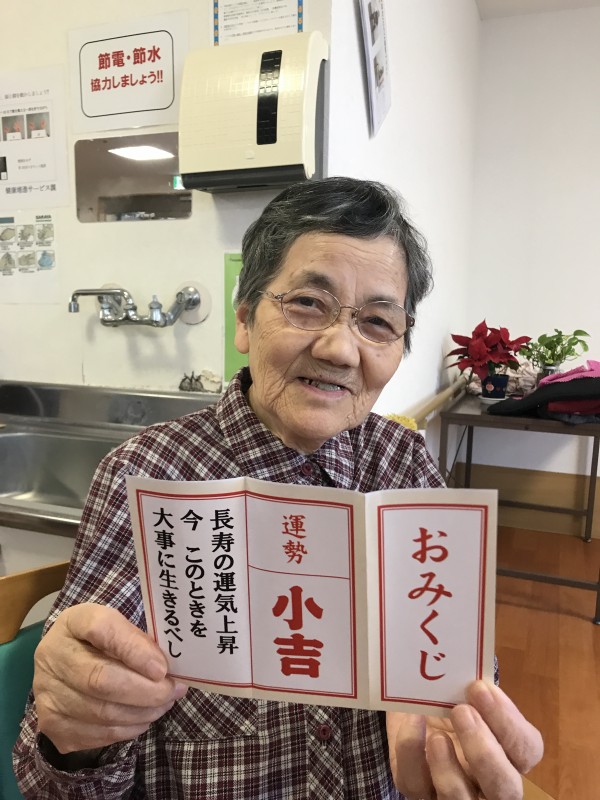 節電・節水
協力しましょう!!
おみくじ
運勢
小吉
長寿の運気上昇
今 このときを
大事に生きるべし